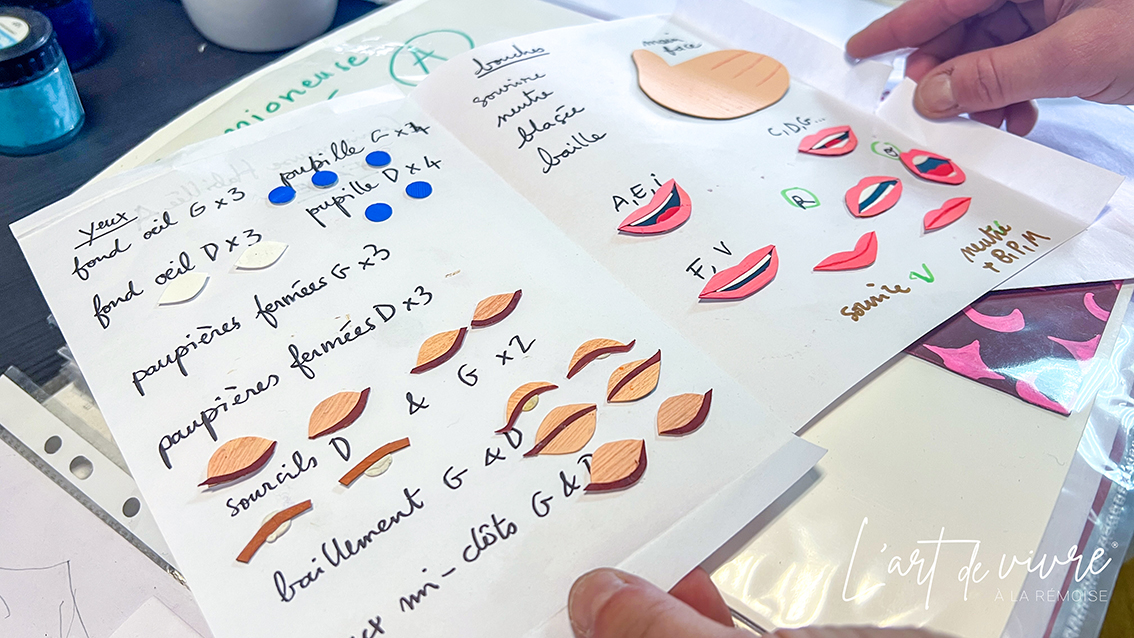 mioneuse
A
yeux
fond oeil G x 3
fond oeil D x 3
pupille G x 4
pupille D x 4
paupières fermées G x 3
paupières fermées D x 3
sourcils D & G x 2
baillement G & D
mi-clôts G & D
bouches
sourire
neutre
blasée
baille
main
face
C, D, G...
A, E, i
R
F, V
sourire V
neutre
+ B, P, M
L'art de vivre®
À LA RÉMOISE